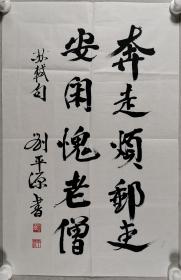 奔走煩郵吏
安闲愧老僧
苏轼句
刘平源书